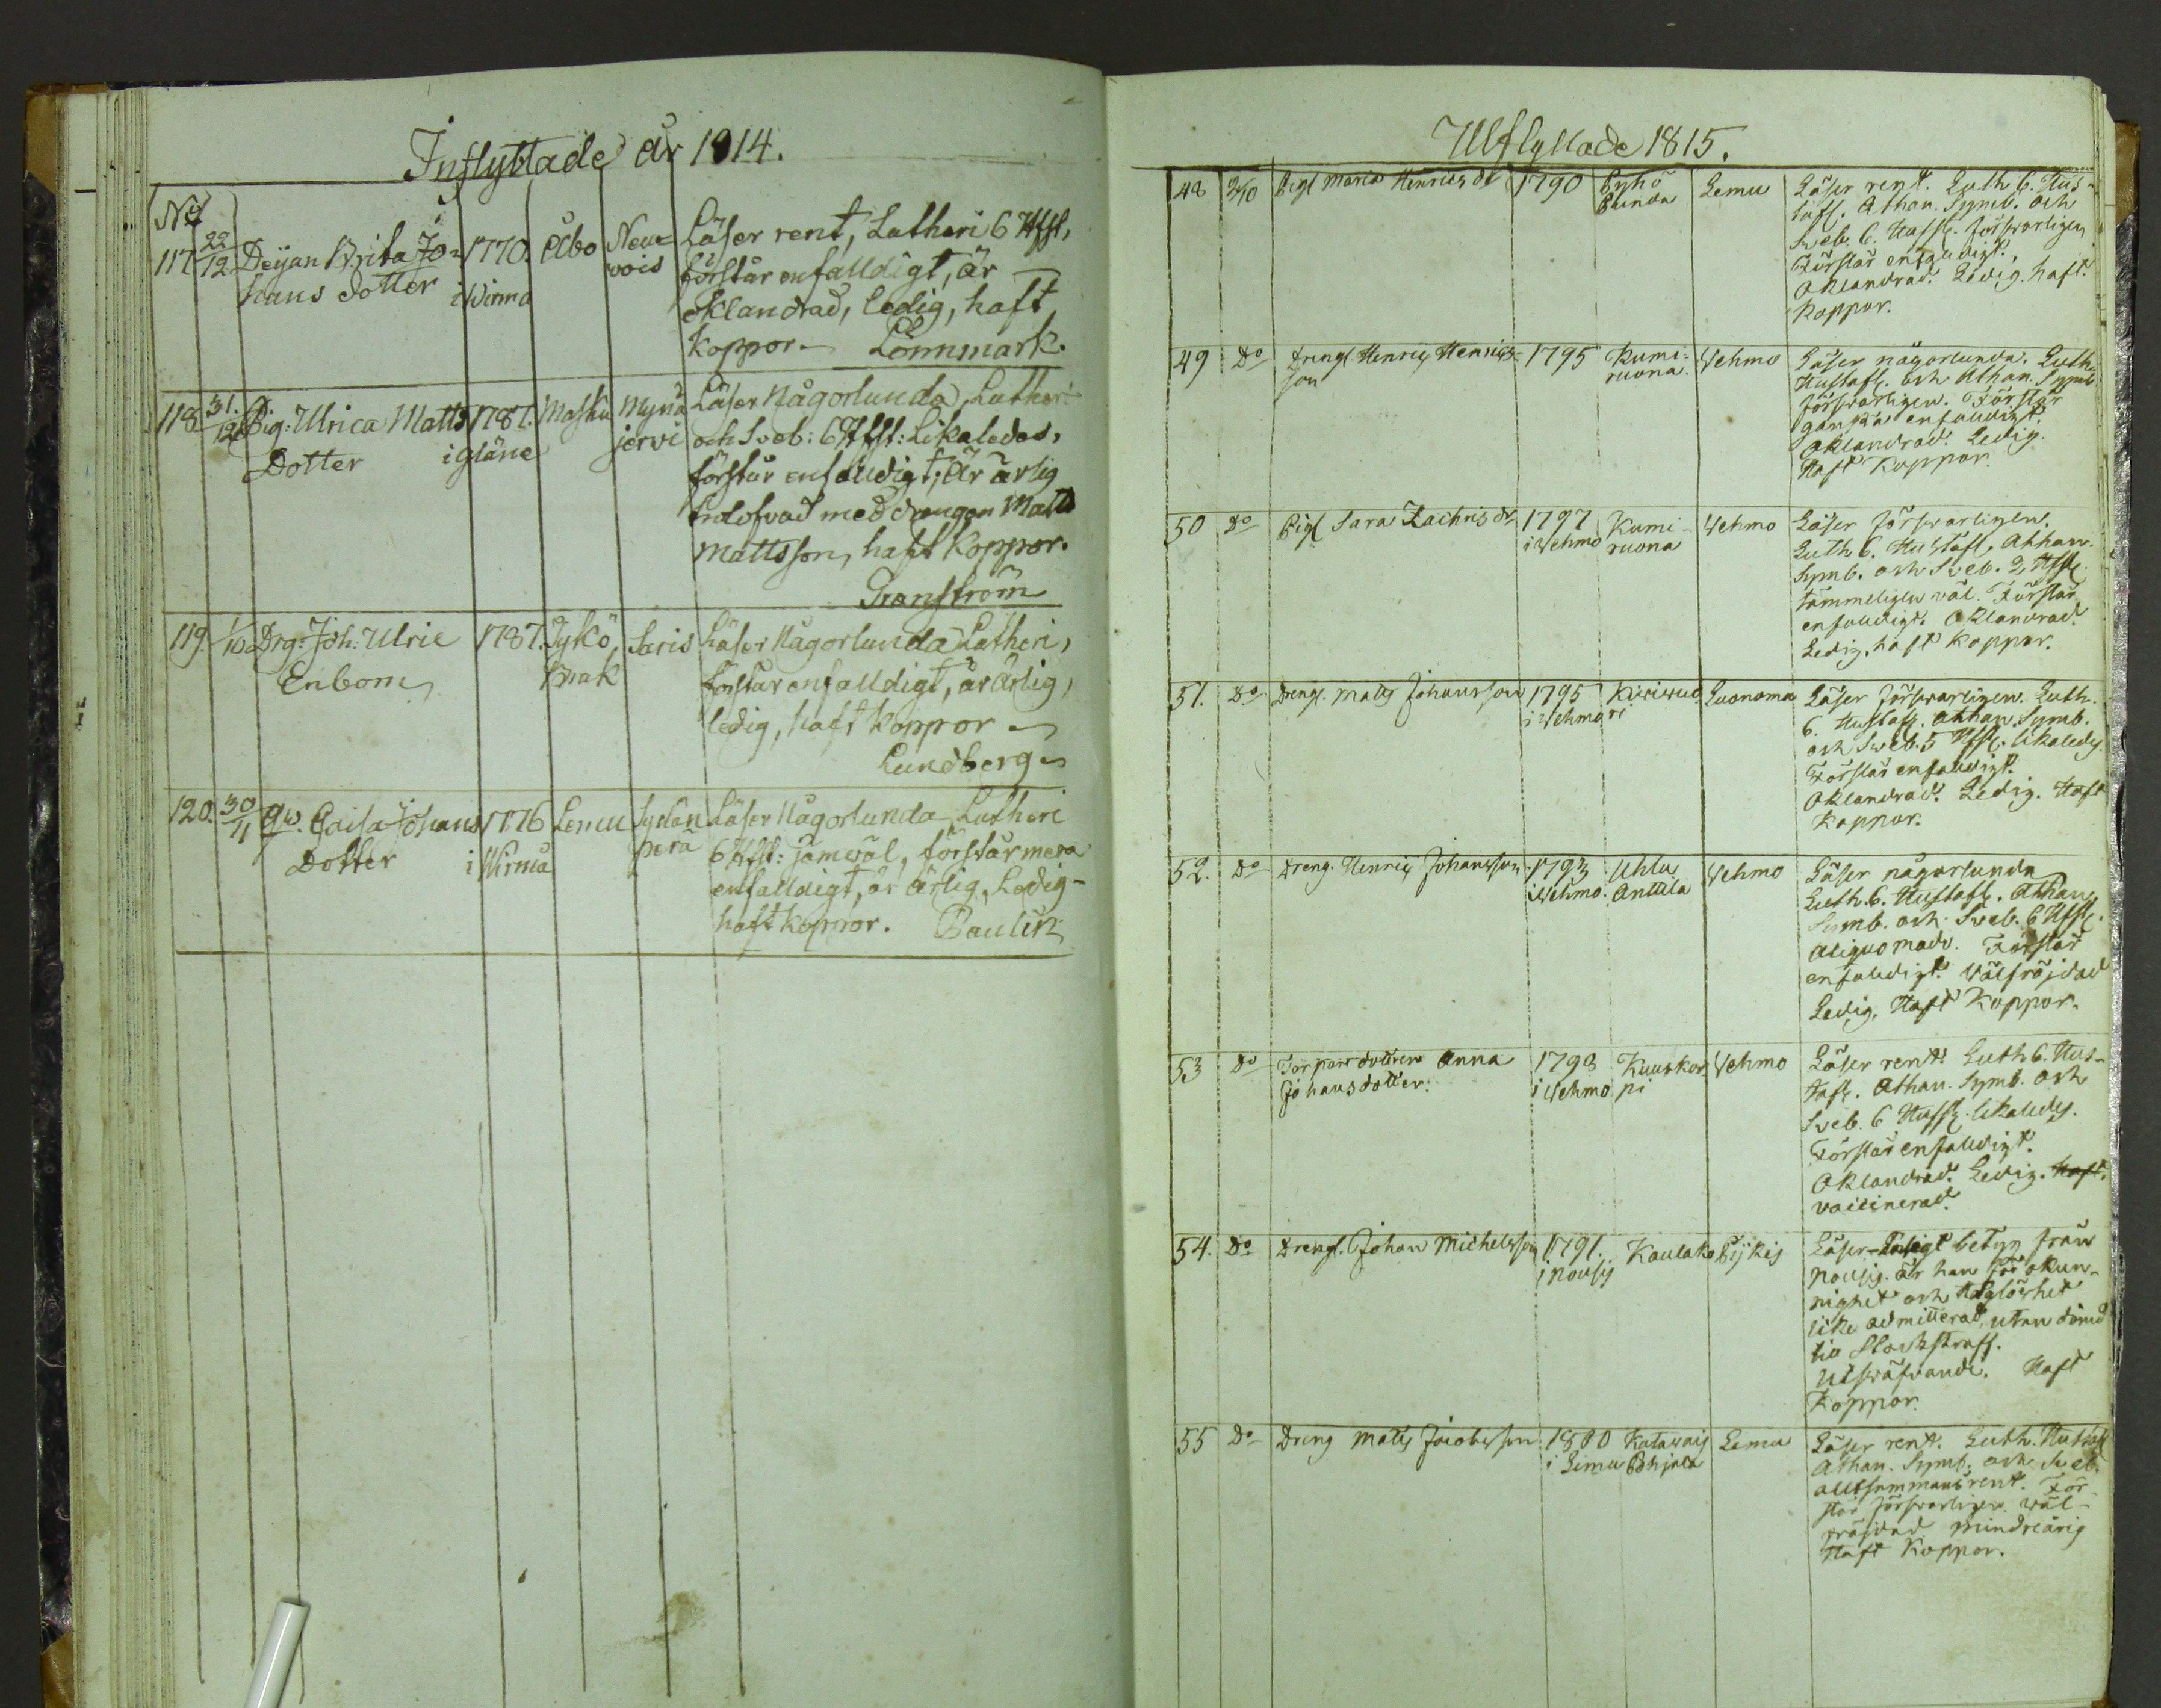 Inflyttade år 1814.
No
117. 22/12 Deijan Brita Jo= 1770. Åbo Neu= Läser rent, Lutheri 6 Hfst,
hans dotter i Wirmo wois förstår enfalldigt, är
oklandrad, ledig, haft
koppor. Lönnmark.
118. 31/12 Pig: Ulrica Matts 1787. Masku Mynä Läser någorlunda, Lutheri
Dotter i Yläne jervi och Sveb: 6 Hfst: Likaledes,
förstår enfalldigt; Är ärlig
trolofvad med drengen Matts
Mattsson, haft koppor.
Granström
119. 1/10 Drg: Joh: Ulric 1787. Tykö Saris Läser någorlunda Lutheri,
Enbom Bruk förstår enfalldigt, är ärlig,
ledig, haft koppor
Lundberg
120. 30/11 Qw. Caisa Johans 1776 Lemu Sydän Läser någorlunda Lutheri
Dotter i Wirmo perä 6 Hfst: jemväl, förstår mera
enfalldigt, är ärlig, Ledig
haft koppor. Paulin
Utflyttade 1815.
48 Pigl Maria Henrics dr 1790 Lemu Läser rent. Luth 6. Hus-
tafl. Athan. Symb. och
Sveb. 6. Hufst. försvarligen
Förstår enfaldigt.
Oklandrad. Ledig. haft
koppor.
49 Do Drengl. Henric Henrics= 1795 Kumi= Wehmo Läser någorlunda. Luth.
son ruona. Hustafl. och Athan. Symb
försvarligen. Förstår
ganska enfaldigt.
Oklandrad. Ledig.
Haft Koppor.
50 Do Pigl Sara Zachris dr 1797 Kumi- Wehmo Läser försvarligen.
i Wehmo ruona Luth 6. Hustafl. Athan.
Symb. och Sveb. 2 Hfst.
tämmeligen väl. Förstår
enfaldigt. Oklandrad.
Ledig. haft koppor.
51. Do Drengl. Matts Johansson 1795 Kiviwuo Luonomaa Läser försvarligen. Luth.
i Wehmo ri 6. Hustafl. Athan. Symb.
och Sveb. 5 Hfst. likaledes.
Förstår enfaldigt.
Oklandrad. Ledig. Haft
Koppor.
52. Do Dreng. Henric Johansson 1793 Uhlu Wehmo Läser någorlunda
i Wehmo. Anttila Luth. 6. Hustafl. Athan.
Symb. och Sveb. 6 Hfst.
aliquo modo. Förstår
enfaldigt. Välfräjdad
Ledig. Haft Koppor.
53 Do Torpardottren Anna 1793 Kuuskor Wehmo Läser rent. Luth 6. Hus-
Johansdotter. i Wehmo pi tafl. Athan. Symb. och
Sveb. 6 Hufst. likaledes.
Förstår enfaldigt.
Oklandrad. Ledig. Haft.
vaccinerad.
54. Do Drengl. Johan Michelsson 1791. Kaulako Pijkis Läser Enligt betyg från
i Nousis Nousis. är han för okun-
nighet och
icke admitterad, utan dömd
til Stockstraff.
Haft
Koppor.
55 Do Dreng Matts Jacobsson 1800 Katavais Lemu Läser rent. Luth. Hustafl
i Lemu Pohjola Athan. Symb. och Sveb.
allsammans rent. För-
står försvarligen. Wäl-
fräjdad minderårig
Haft Koppor.